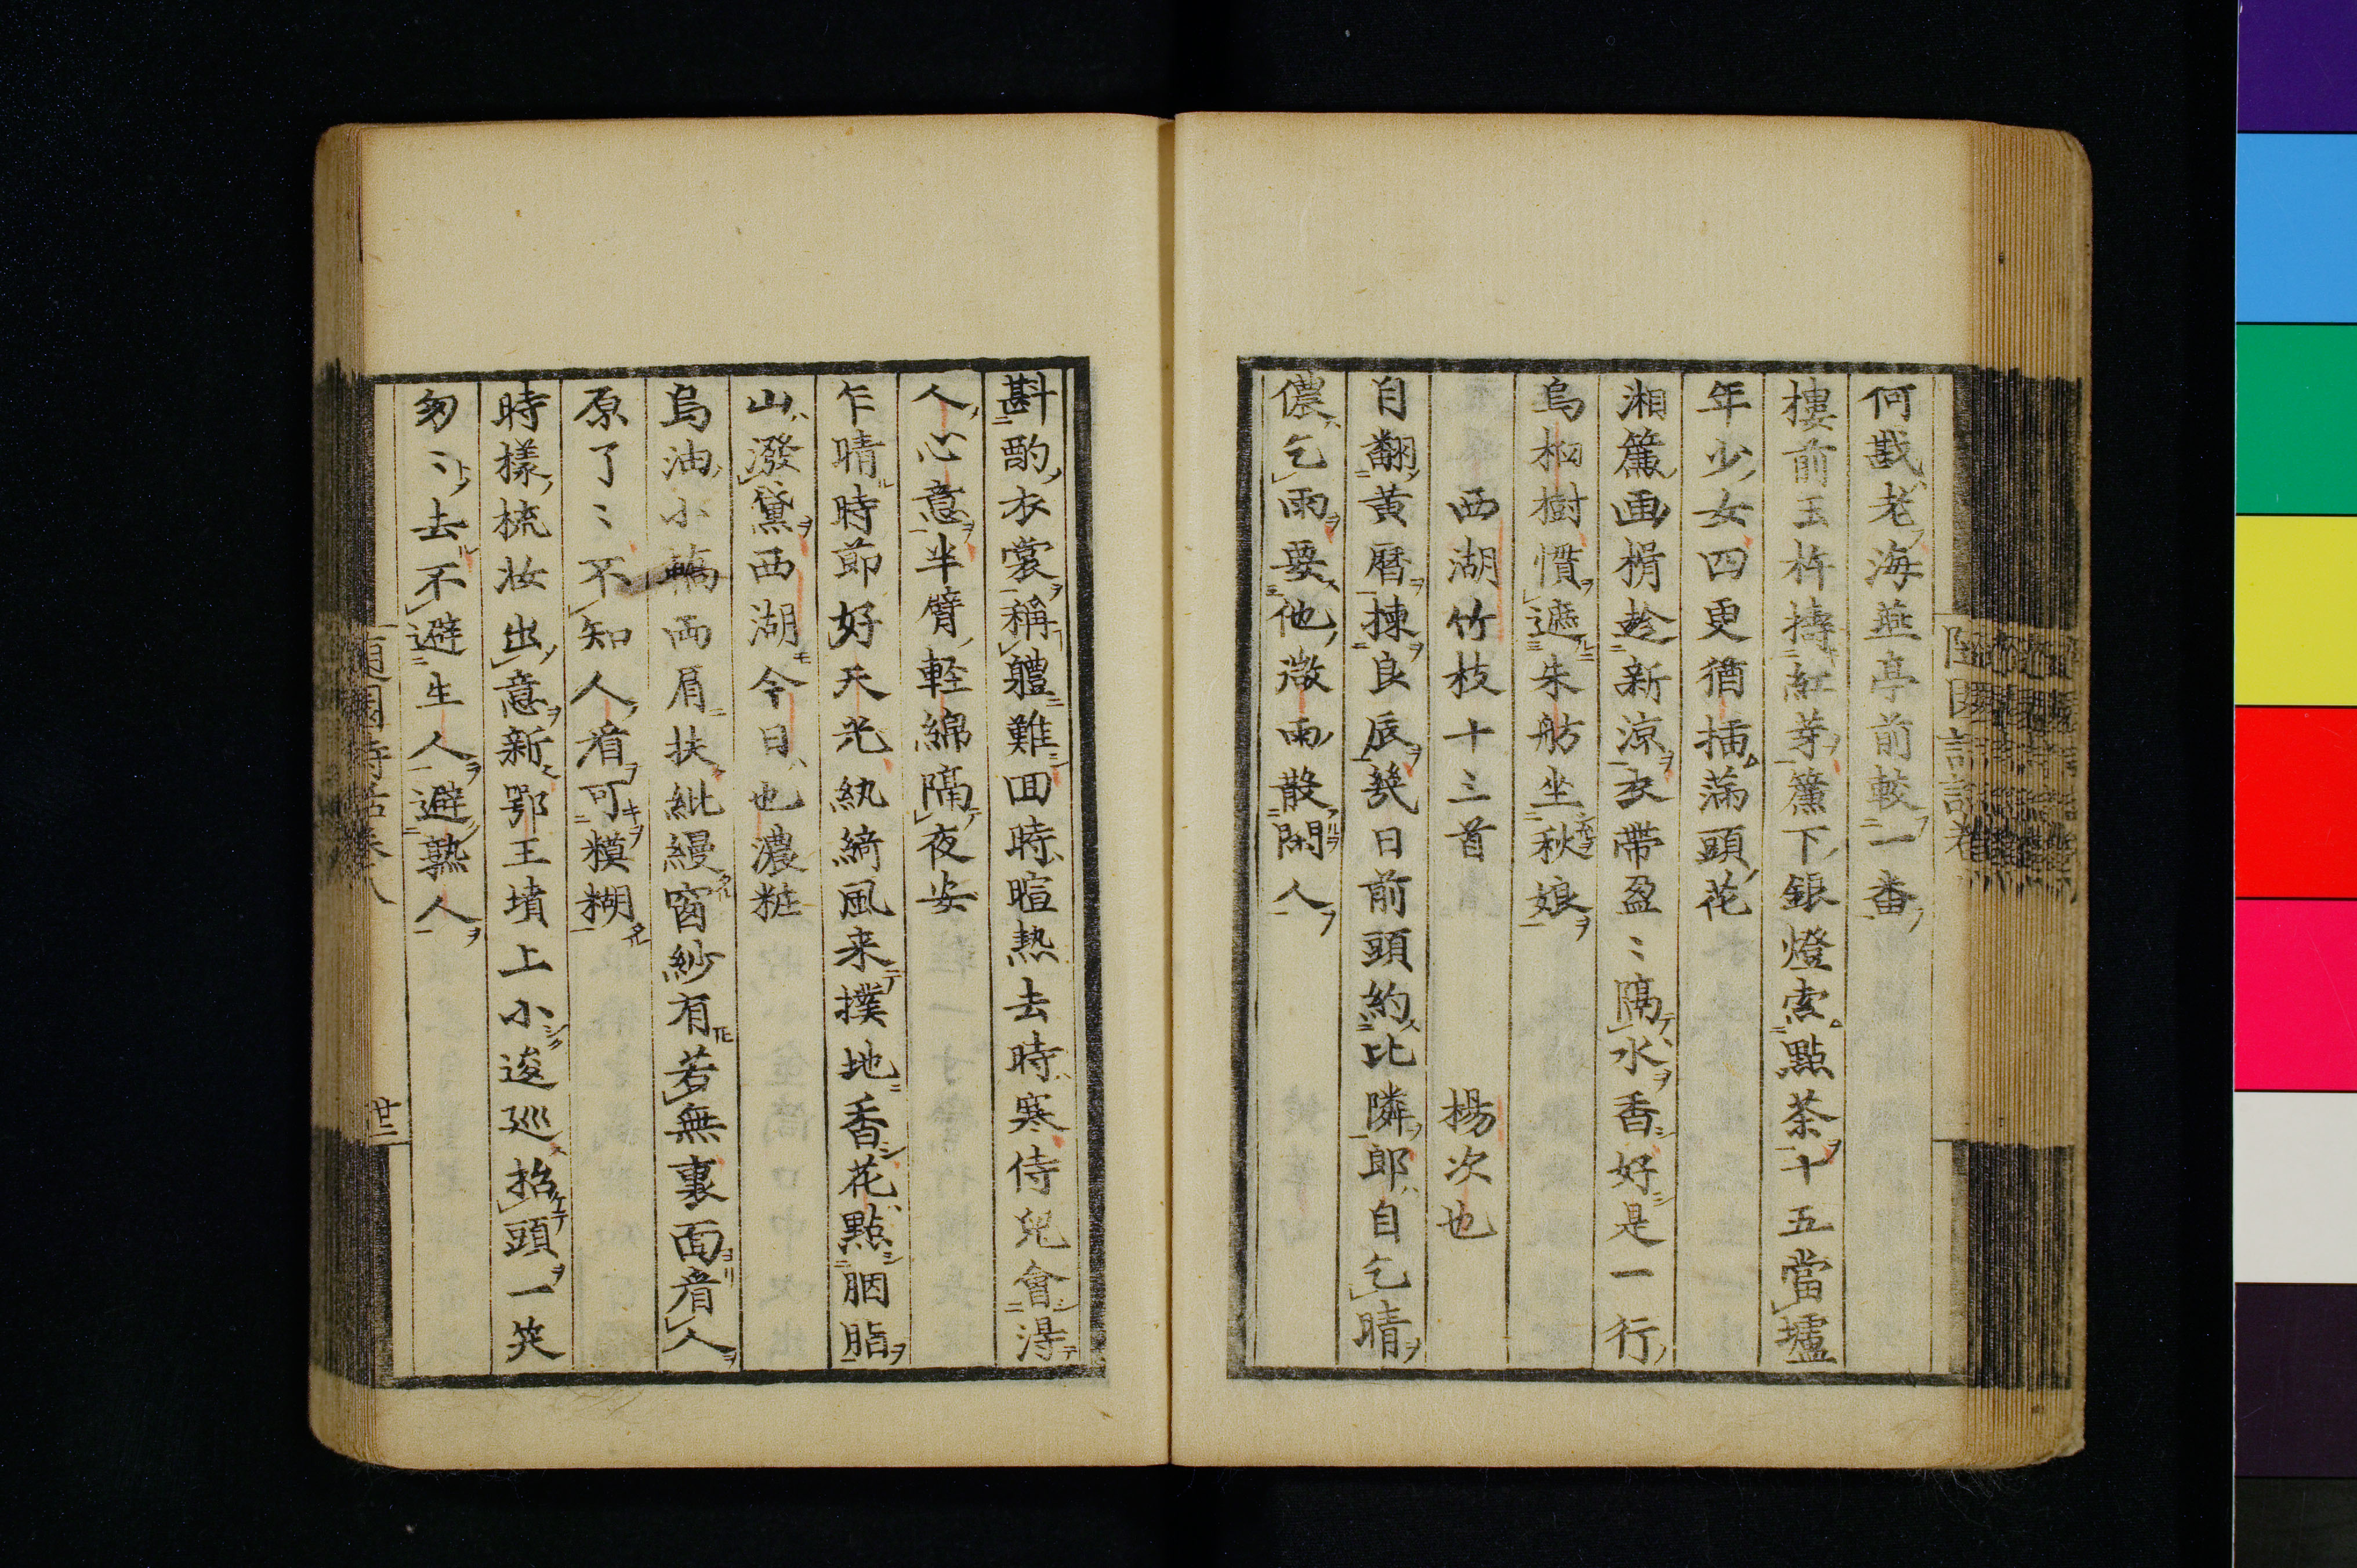 何戡老海燕亭前較一番
樓前玉杵擣紅芽簾下銀燈索點茶十五當壚
年少女四更猶插滿頭花
湘簾画楫趁新涼衣帶盈〻隔水香好是一行
烏桕樹慣遮朱舫坐秋娘
西湖竹枝十三首　楊次也
自翻黃曆揀良辰幾日前頭約比隣郎自乞晴
儂乞雨要他微雨散閑人
斟酌衣裳稱軆難囬時暄熱去時寒侍兒會得
人心意半臂軽綿隔夜安
乍晴時節好天光紈綺風来撲地香花點胭脂
山潑黛西湖今日也濃粧
烏油小轎兩肩扶紕縵窗紗有若無裏面看人
原了〻不知人看可糢糊
時様梳妆出意新鄂王墳上小逡巡抬頭一笑
匆〻去不避生人避熟人
隨園詩話卷八
廿二